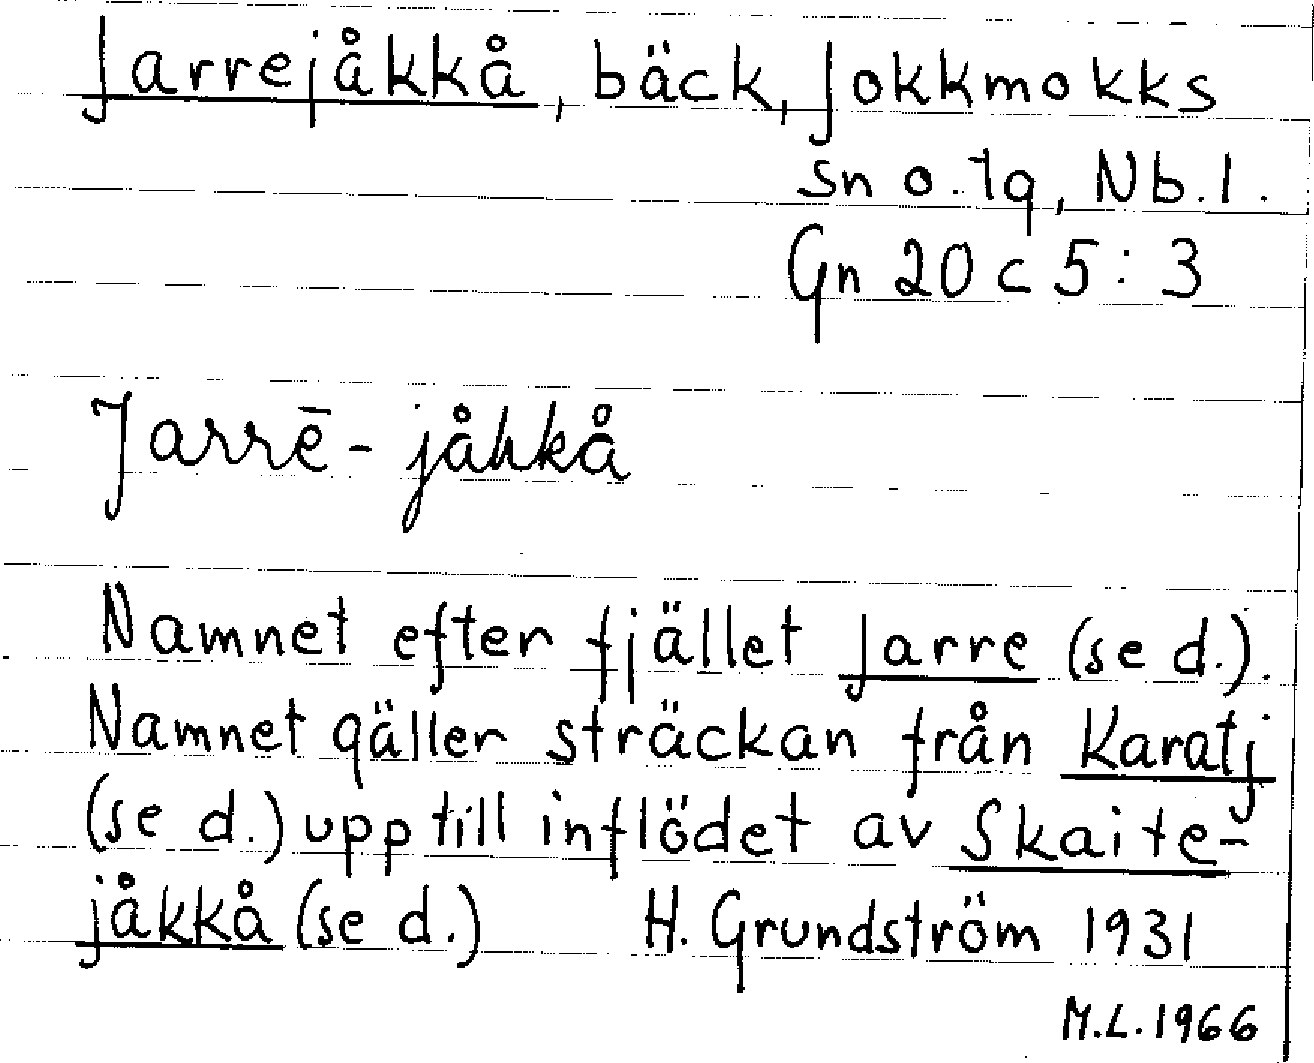 Jarrejåkkå, bäck, Jokkmokks
sn o. lg, Nb.l.
Gn 20 c 5:3
Jarrē-jåhkå
Namnet efter fjället Jarre (se d.).
Namnet gäller sträckan från Karatj
(se d.) upp till inflödet av Skaite-
jåkkå (se d.) H. Grundström 1931
M.L. 1966